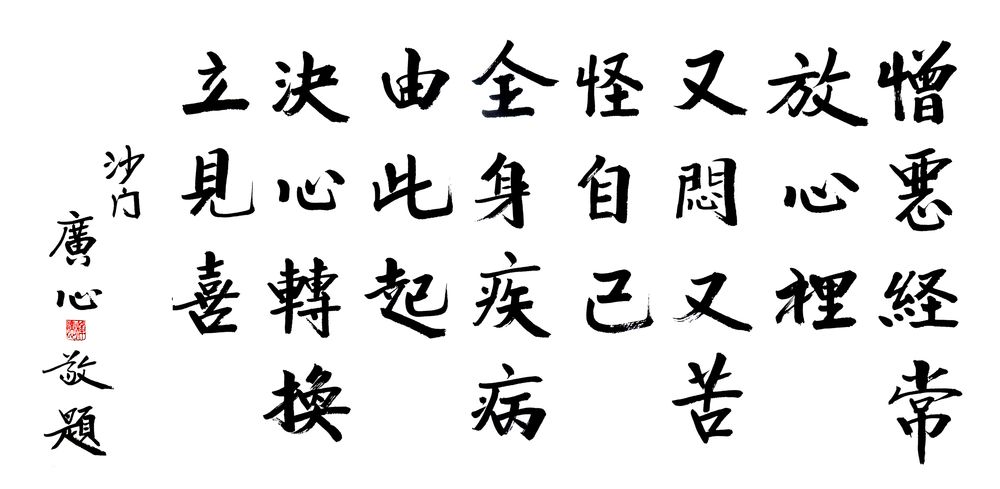 憎惡経常
放心裡
又悶又苦
怪自己
全身疾病
由此起
決心轉換
立見喜
沙门
廣心敬題